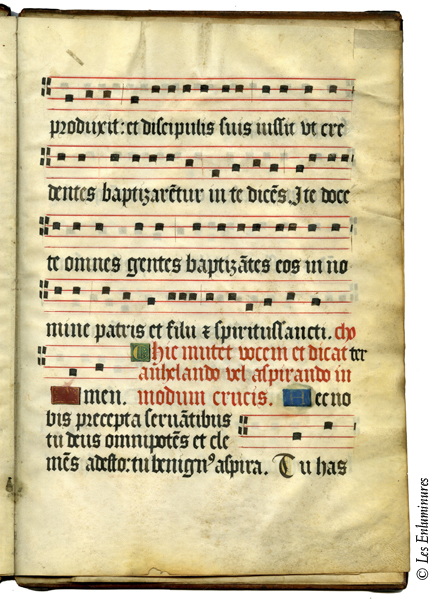 produxit: et discipulis suis iussit vt cre
dentes baptizarētur in te dicēs. Ite doce
te omnes gentes baptizātes eos in no
mine patris et filii ⁊ spiritussancti. cho
hic mutet vocem et dicat ter
anhelando vel aspirando in
Amen. modum crucis. Hec no
bis precepta seruātibus
tu deus omnipotēs et cle
mēs adesto: tu benignꝰ aspira. Tu has
© Les Enluminures